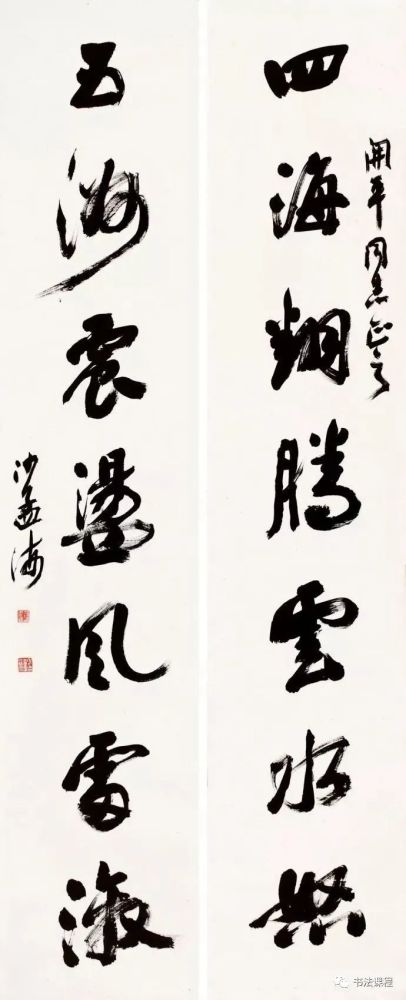 開平同志正之
四海翻騰雲水怒
五洲震盪風雷激
沙孟海
书法课程